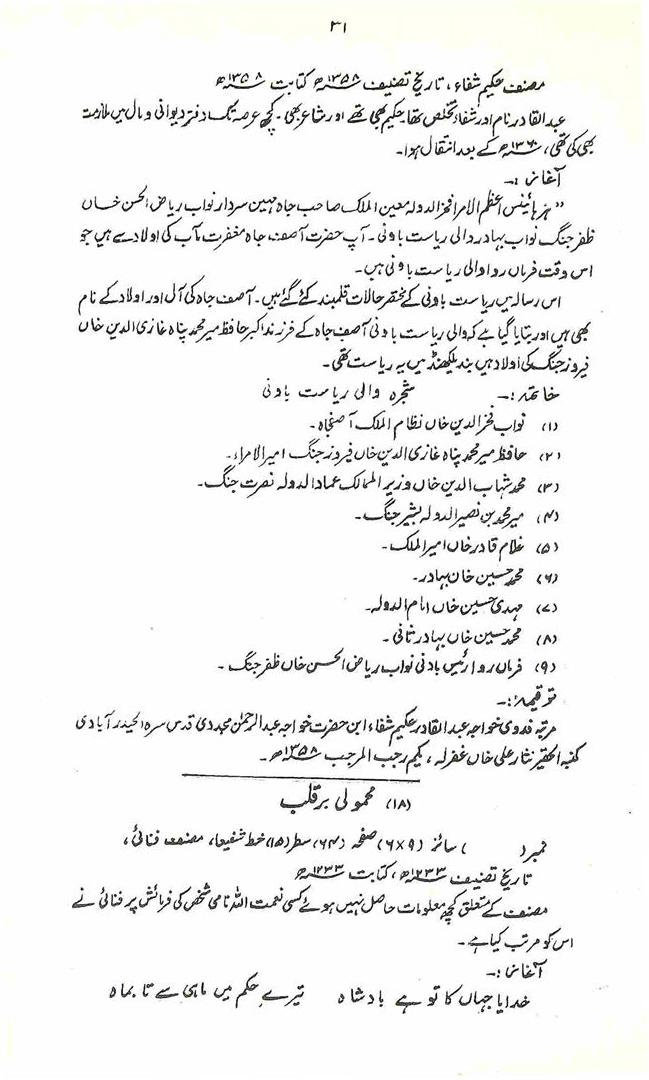 ۳۱
مصنف حکیم شفاء، تاریخ تصنیف ۱۳۵۸ھ کتابت ۱۳۵۸ھ
عبدالقادر نام اور شفاء تخلص تھا حکیم بھی تھے اور شاعر بھی۔ کچھ عرصہ تک دفتر دیوانی و مال میں ملازمت
بھی کی تھی، ۱۳۶۰ھ کے بعد انتقال ہوا۔
آغاز :۔
"ہز ہائینس اعظم الامرا فخر الدولہ معین الملک صاحب جاہ مہین سردار نواب ریاض الحسن خاں
ظفر جنگ نواب بہادر والی ریاست باونی۔ آپ حضرت آصف جاہ مغفرت مآب کی اولاد سے ہیں جو
اس وقت فرماں روا والی ریاست باونی ہیں۔
اس رسالہ میں ریاست باونی کے مختصر حالات قلمبند کئے گئے ہیں۔ آصف جاہ کی آل اور اولاد کے نام
بھی ہیں اور بتایا گیا ہے کہ والی ریاست باونی آصف جاہ کے فرزند اکبر حافظ میر محمد پناہ غازی الدین خاں
فیروز جنگ کی اولاد ہیں بندیلکھنڈ میں یہ ریاست تھی۔
خاتمہ :۔ شجرہ والی ریاست باونی
(۱) نواب فخر الدین خاں نظام الملک آصفجاہ۔
(۲) حافظ میر محمد پناہ غازی الدین خاں فیروز جنگ امیر الامراء۔
(۳) محمد شہاب الدین خاں وزیر الممالک عماد الدولہ نصرت جنگ۔
(۴) میر محمد بن نصیر الدولہ بشیر جنگ۔
(۵) غلام قادر خاں امیر الملک۔
(۶) محمد حسین خان بہادر۔
(۷) مہدی حسین خاں امام الدولہ۔
(۸) محمد حسین خاں بہادر ثانی۔
(۹) فرماں روا رئیس باونی نواب ریاض الحسن خاں ظفر جنگ۔
ترقیمہ :۔
مرتبہ فدوی خواجہ عبدالقادر حکیم شفاء ابن حضرت خواجہ عبدالرحمٰن مجددی قدس سرہ الحیدرآبادی
کتبہ الحقیر نثار علی خاں غفرلہ، یکم رجب المرجب ۱۳۵۸ھ۔
(۱۸) محمولی بر قلب
نمبر ( ) سائز (۹×۶) صفحہ (۶۴) سطر (۱۵) خط شفیعا، مصنف فنائی،
تاریخ تصنیف ۱۲۳۳ھ، کتابت ۱۲۳۳ھ
مصنف کے متعلق کچھ معلومات حاصل نہیں ہوئے کسی نعمت اللہ نامی شخص کی فرمائش پر فنائی نے
اس کو مرتب کیا ہے۔
آغاز :۔
خدایا جہاں کا تو ہے بادشاہ تیرے حکم میں ماہی سے تا بماہ